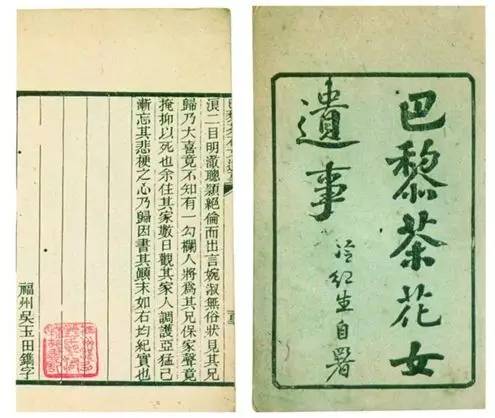 巴黎茶花女
遺事
冷紅生自署
浪二目明澈聰穎絕倫而出言婉淑無俗狀見其兄
歸乃大喜竟不知有一勾欄人將爲其兄保家聲竟
掩抑以死也余住其家數日觀其家人調護亞猛已
漸忘其悲梗之心乃歸因書其顛末如右均紀實也
福州吳玉田鐫字